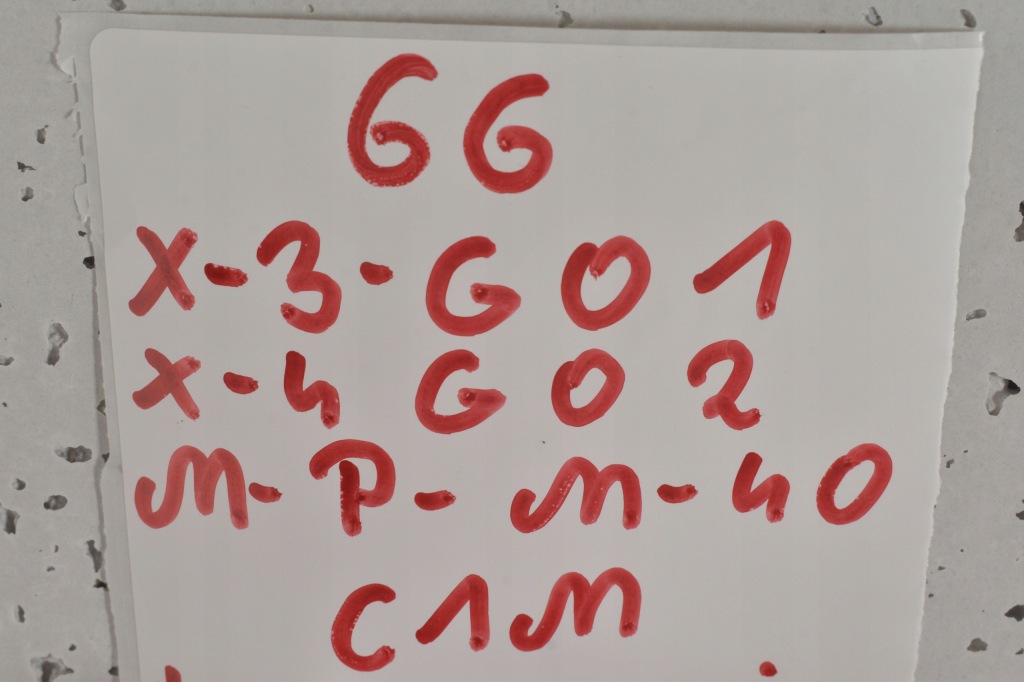 66
X-3-G01
X-4 G02
M-P-M-40
C1M